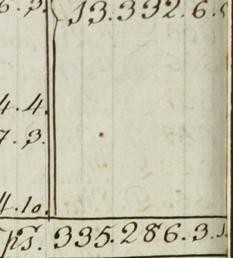 6.3. 13.332.6.
4.4.
7.3.
4.10.
ps. 335.286.3.